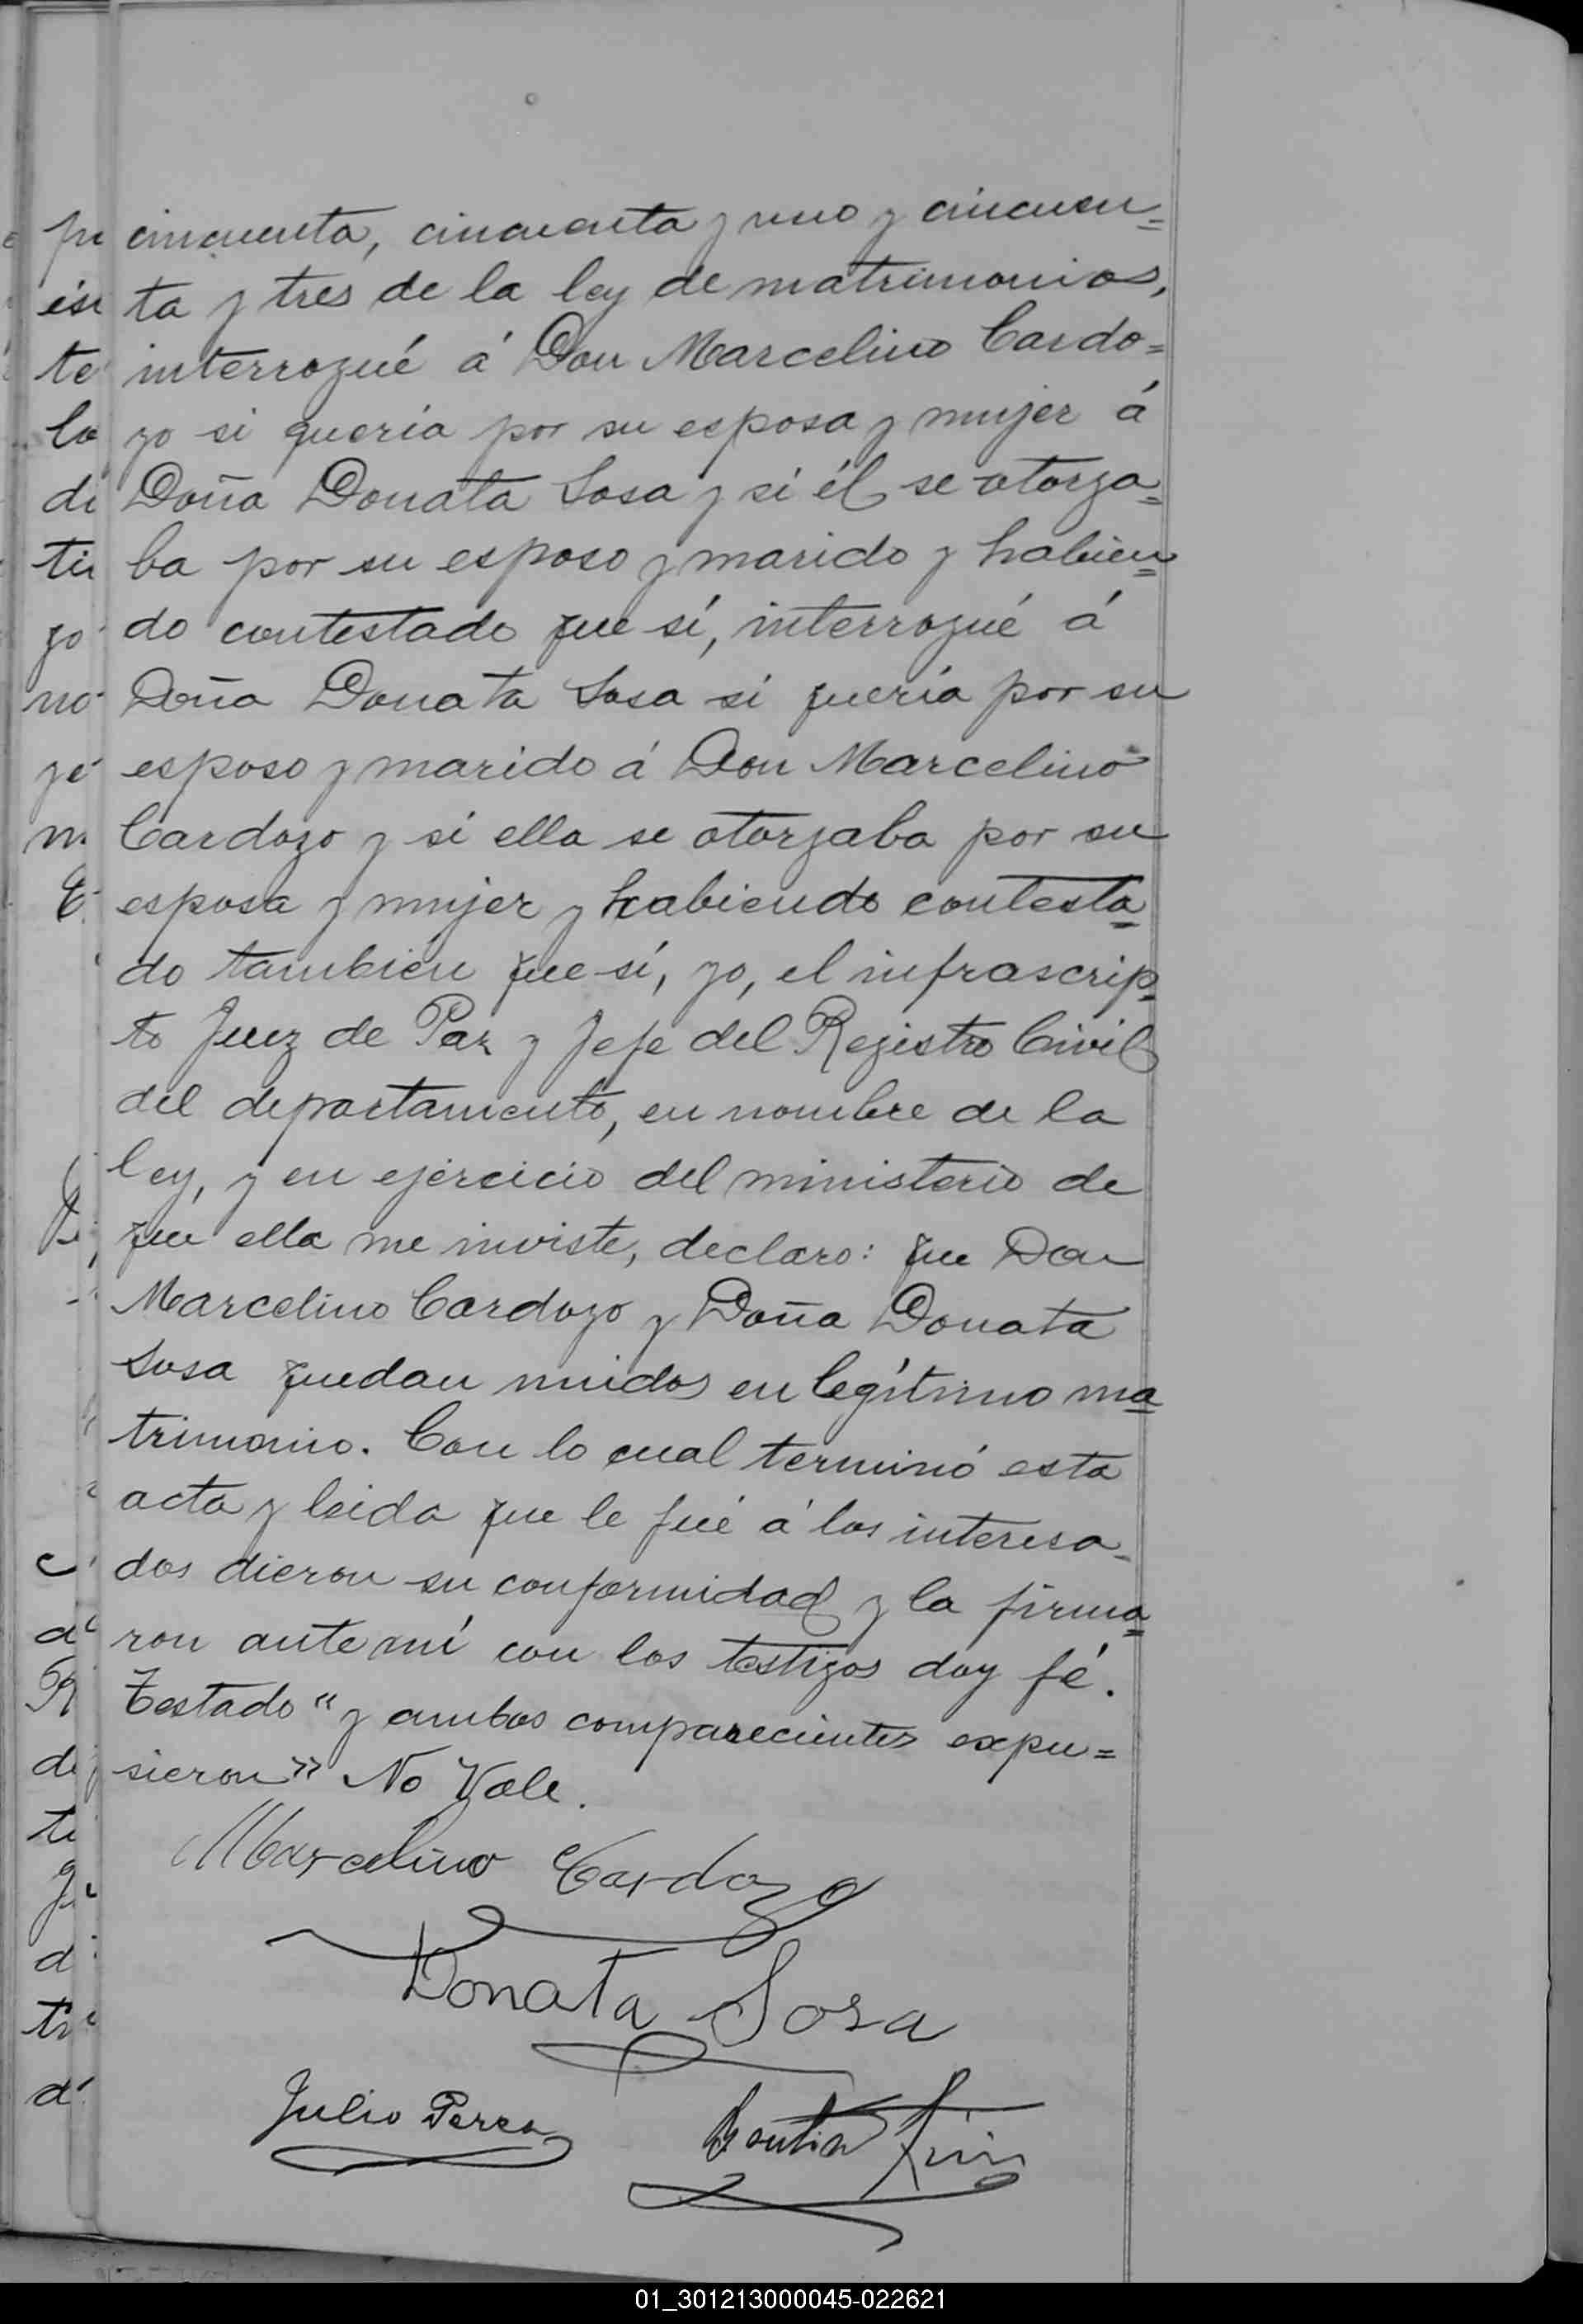 cincuenta, cincuenta y uno y cincuen=
ta y tres de la ley de matrimonios,
interrogué á Don Marcelino Cardo=
zo si queria por su esposa y mujer á
Doña Donata Sosa y si él se otorga=
ba por su esposo y marido y habien=
do contestado que sí, interrogué á
Doña Donata Sosa si queria por su
esposo y marido á Don Marcelino
Cardozo y si ella se otorgaba por su
esposa y mujer y habiendo contesta=
do tambien que sí, yo, el infrascrip=
to Juez de Paz y Jefe del Registro Civil
del departamento, en nombre de la
ley, y en ejercicio del ministerio de
que ella me inviste, declaro: que Don
Marcelino Cardozo y Doña Donata
Sosa quedan unidos en legítimo ma=
trimonio. Con lo cual terminó esta
acta y leida que le fué á los interesa=
dos dieron su conformidad y la firma=
ron ante mí con los testigos doy fé.
Testado "y ambos comparecientes expu=
sieron" No Vale.
Marcelino Cardozo
Donata Sosa
Julio Perea
01_301213000045-022621